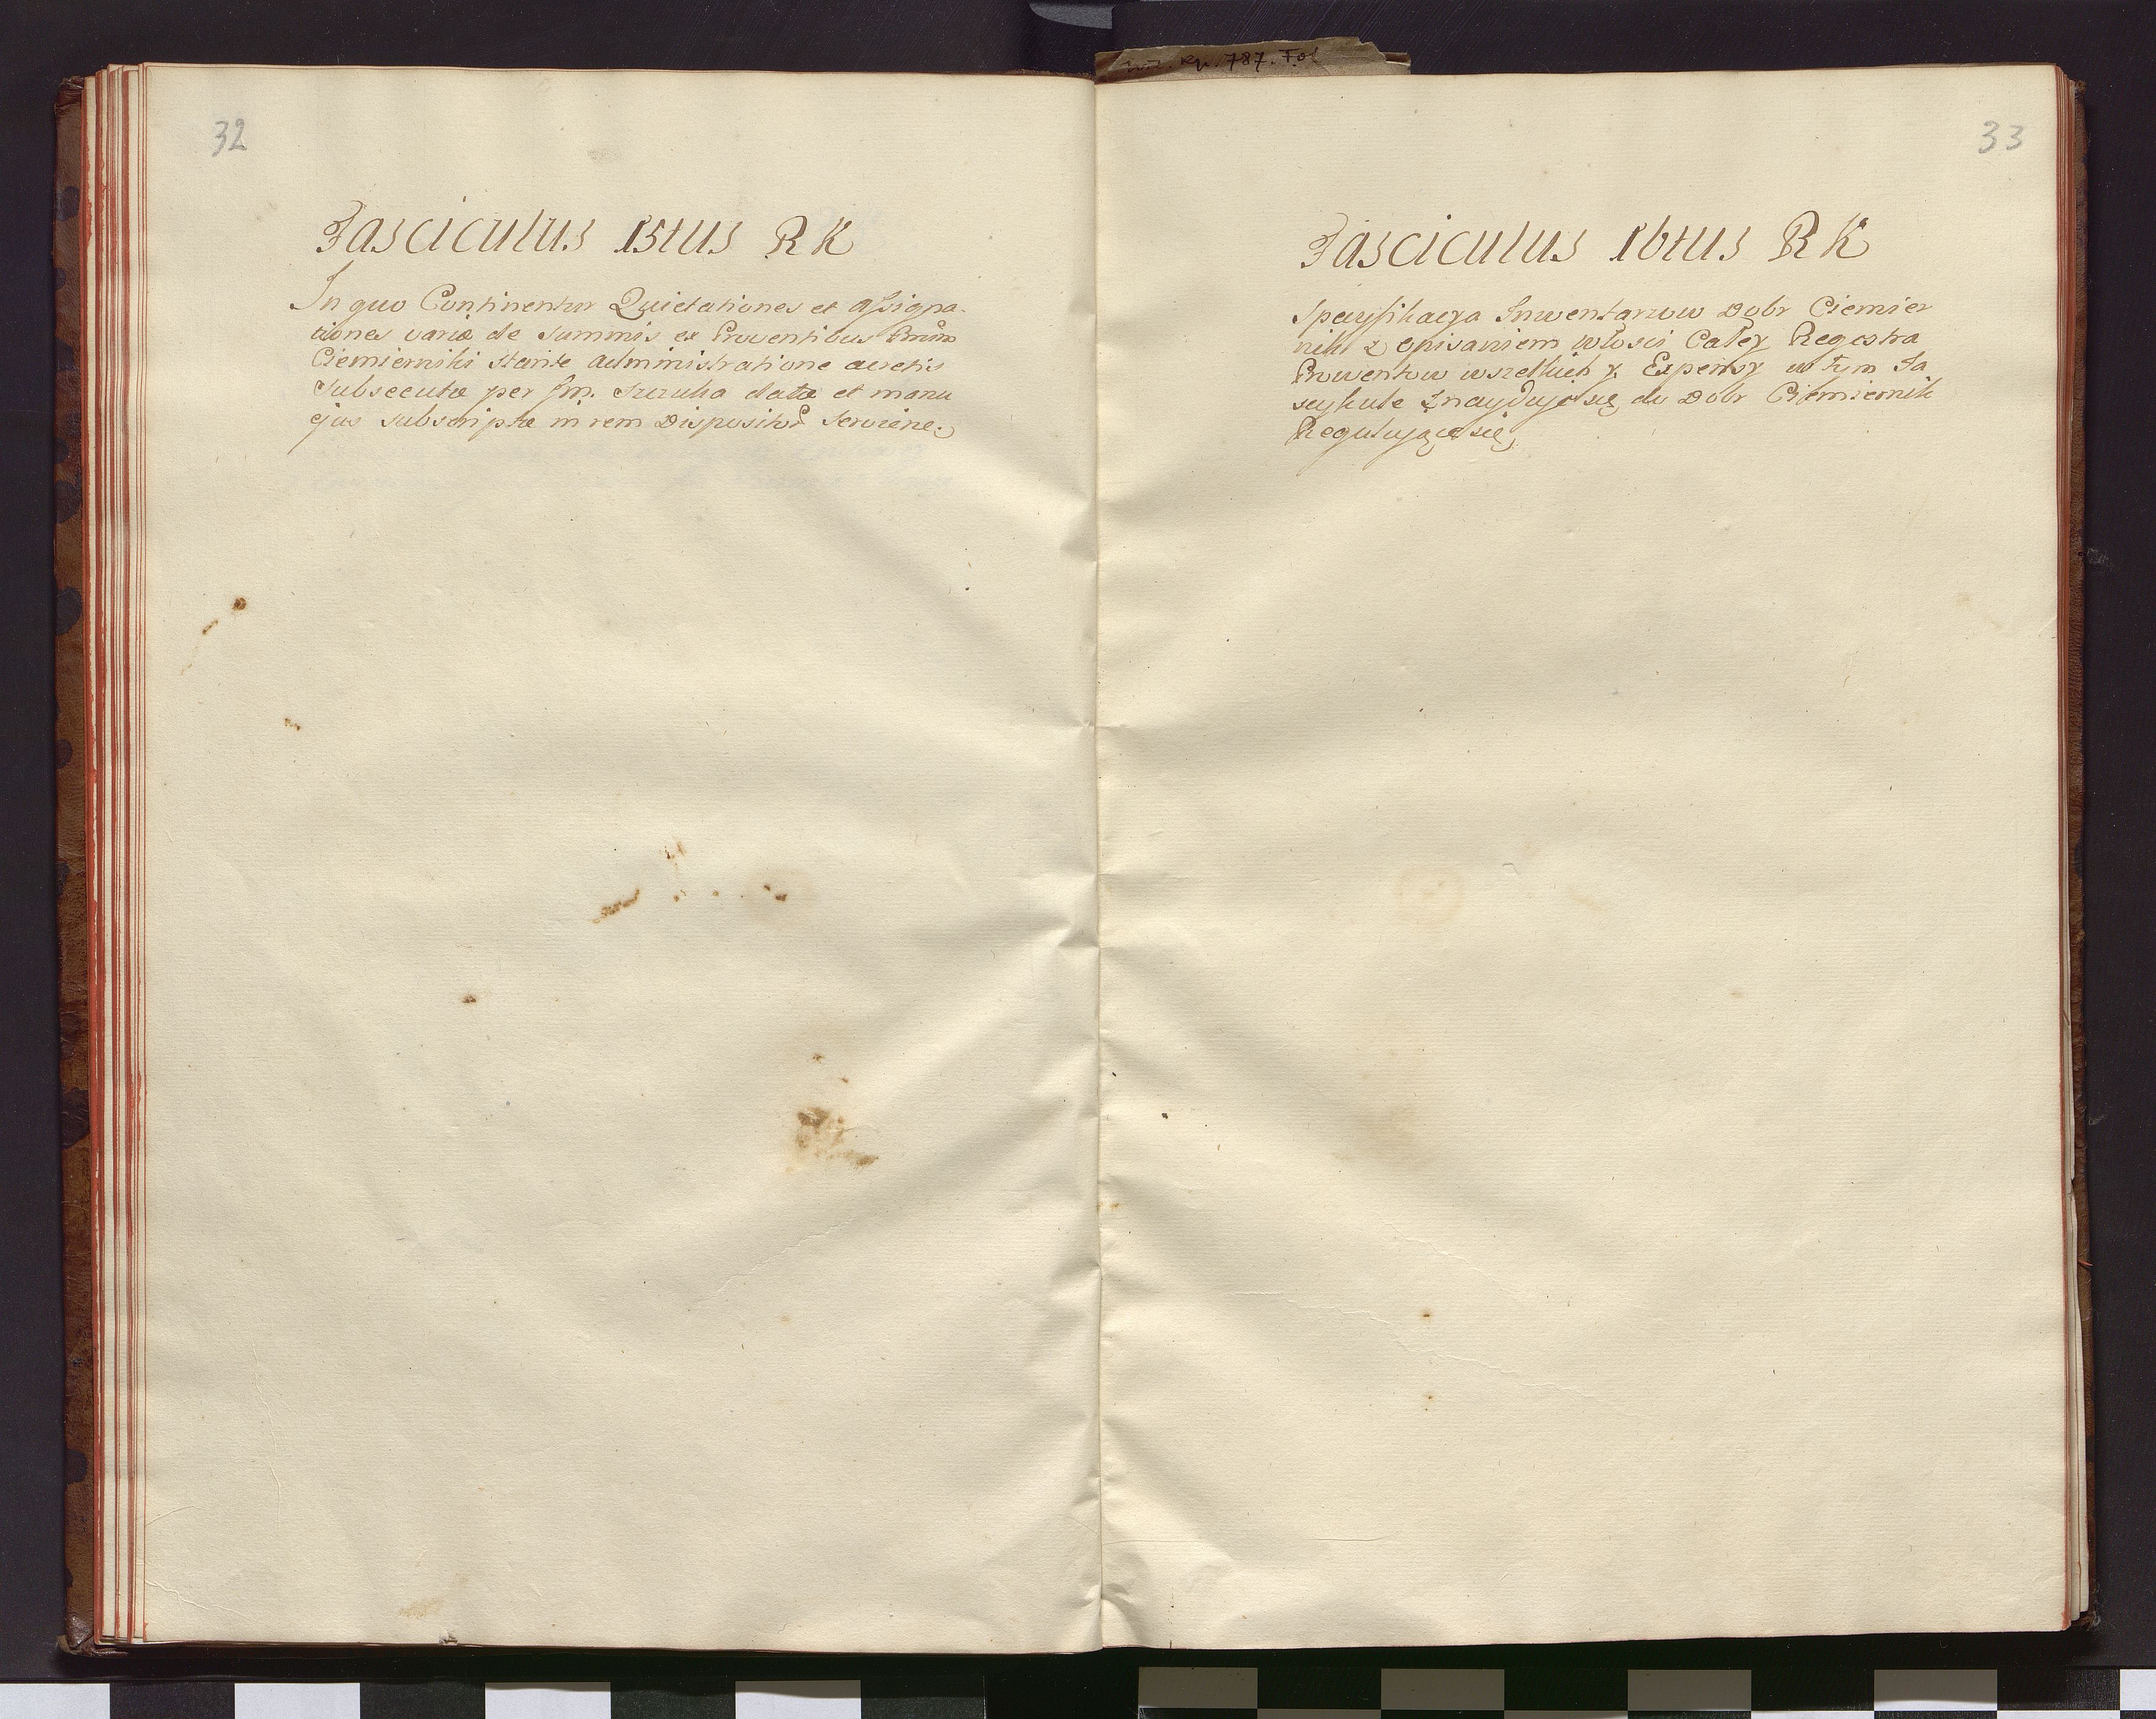 32
Fasciculus 15tus R K
In quo Continentur Quietationes et assigna-
tiones variæ de summis ex Proventibus
Ciemierniki stante administratione avctis
subsecutæ per datæ et manu
ejus subscriptæ in rem Dispositor
787. Fol
33
Fasciculus 16tus R K
Specyfikacya Inwentarzow Dobr Ciemier
nik z opisaniem włosci Całey Regestra
Prowentow wszelkich y Expensy w tym Fa
scykule Znaydują się do Dobr Ciemiernik
Regulujące się